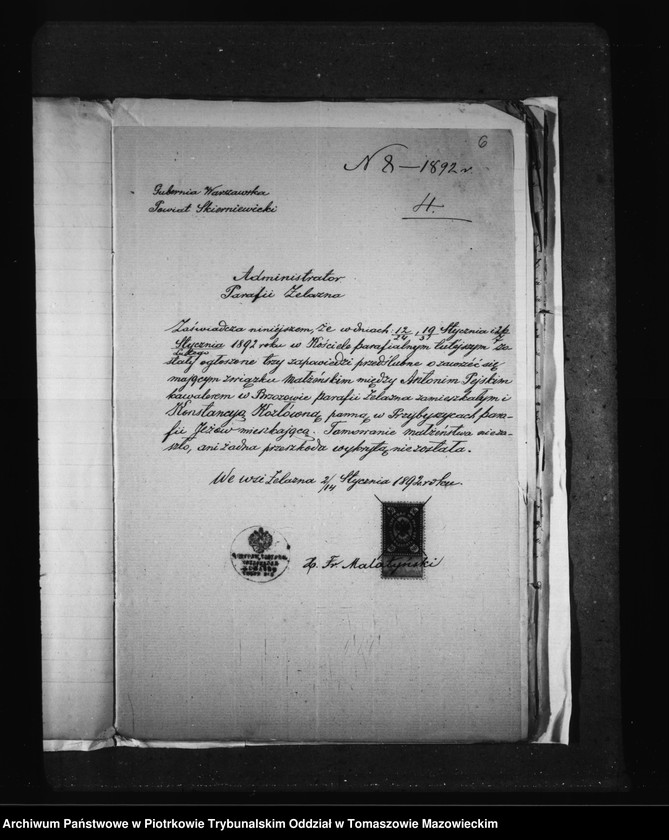 6
N 8 — 1892 r.
4.
Gubernia Warszawska
Powiat Skierniewicki
Administrator
Parafii Żelazna
Zaświadcza niniejszem, że w dniach 12/24, 19/31 Stycznia i
Stycznia 1892 roku w Kościele parafialnym tutejszym zo-
Lutego
stały ogłoszone trzy zapowiedzi przedślubne o zawrzeć się
mającym związku Małżeńskim między Antonim Pejskim
kawalerem w Brzozowie parafii Żelazna zamieszkałym i
Konstancyą Kozłówną panną w Przybyszycach para-
fii Jeżów mieszkającą. Tamowanie małżeństwa nie za-
szło, ani żadna przeszkoda wykrytą nie została.
We wsi Żelazna 2/14 Stycznia 1892 roku.
X. Fr. Matatyński
Archiwum Państwowe w Piotrkowie Trybunalskim Oddział w Tomaszowie Mazowieckim